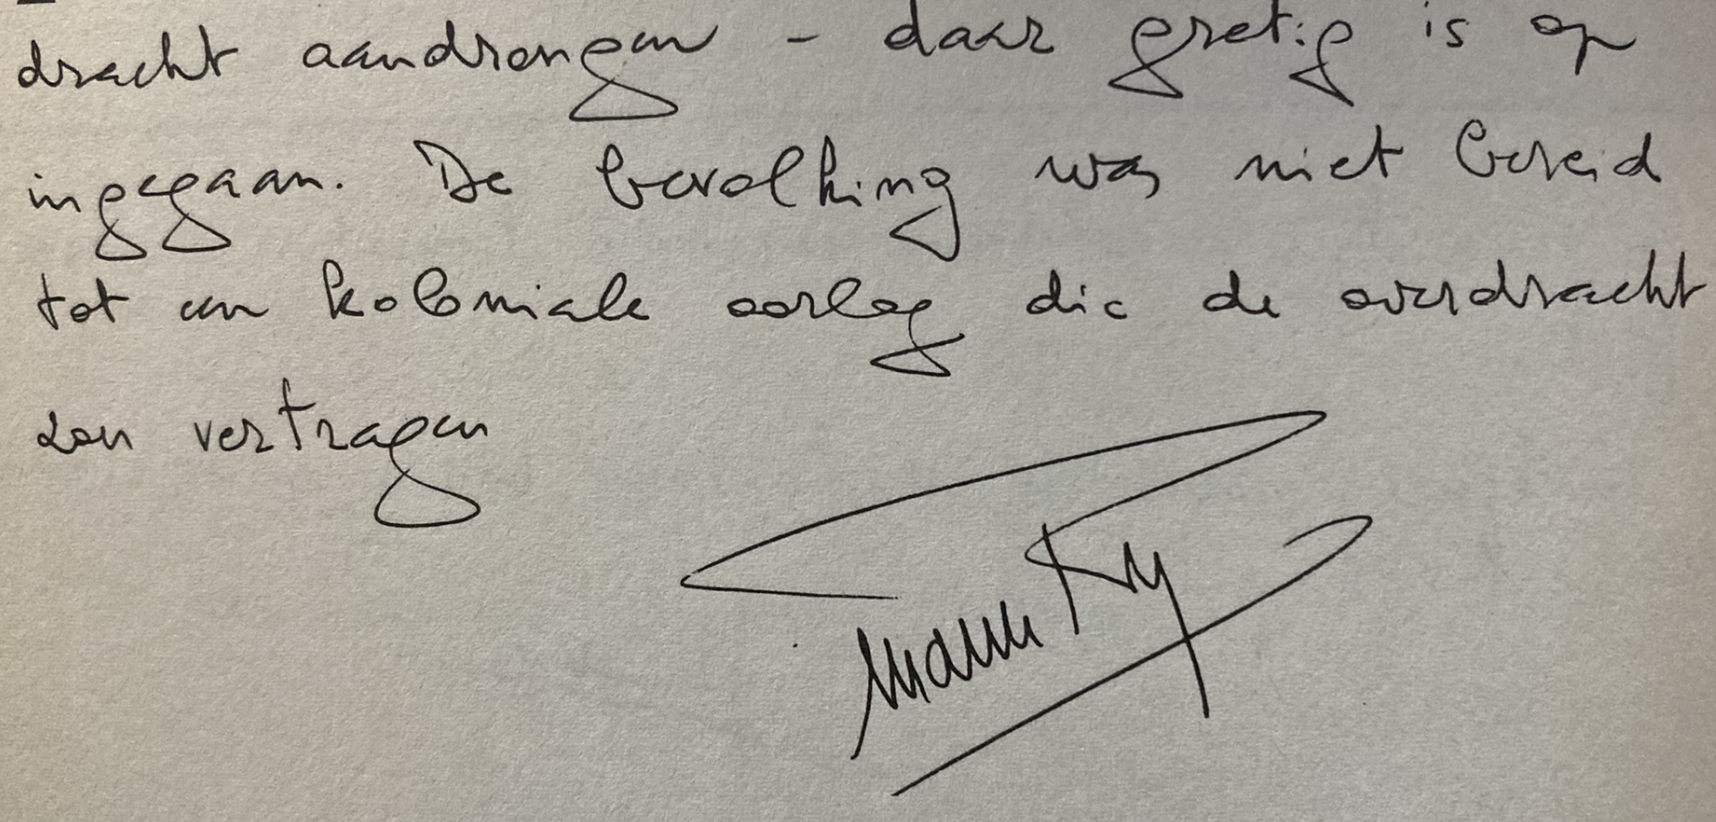 dracht aandrongen - daar gretig is op
ingegaan. De bevolking was niet bereid
tot een koloniale oorlog die de overdracht
zou vertragen